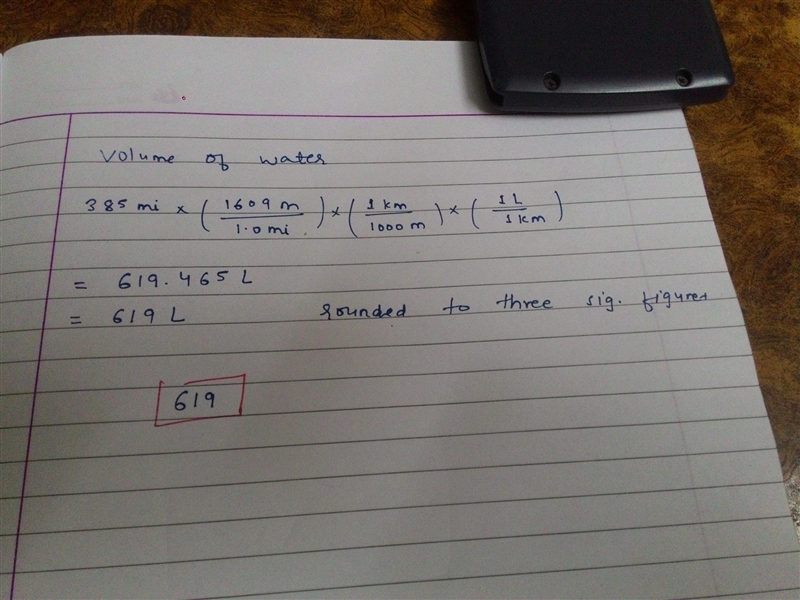 Volume of water
385 mi × ( 1609 m / 1.0 mi ) × ( 1 km / 1000 m ) × ( 1 L / 1 km )
= 619.465 L
= 619 L rounded to three sig. figures
619